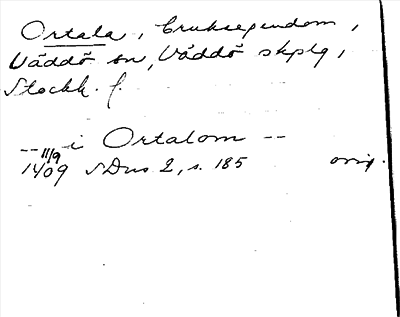 Ortala, bruksegendom,
Väddö sn, Väddö skplg,
Stockh. f.
-- i Ortalom --
11/9
1409 SDns 2, s. 185 orig.